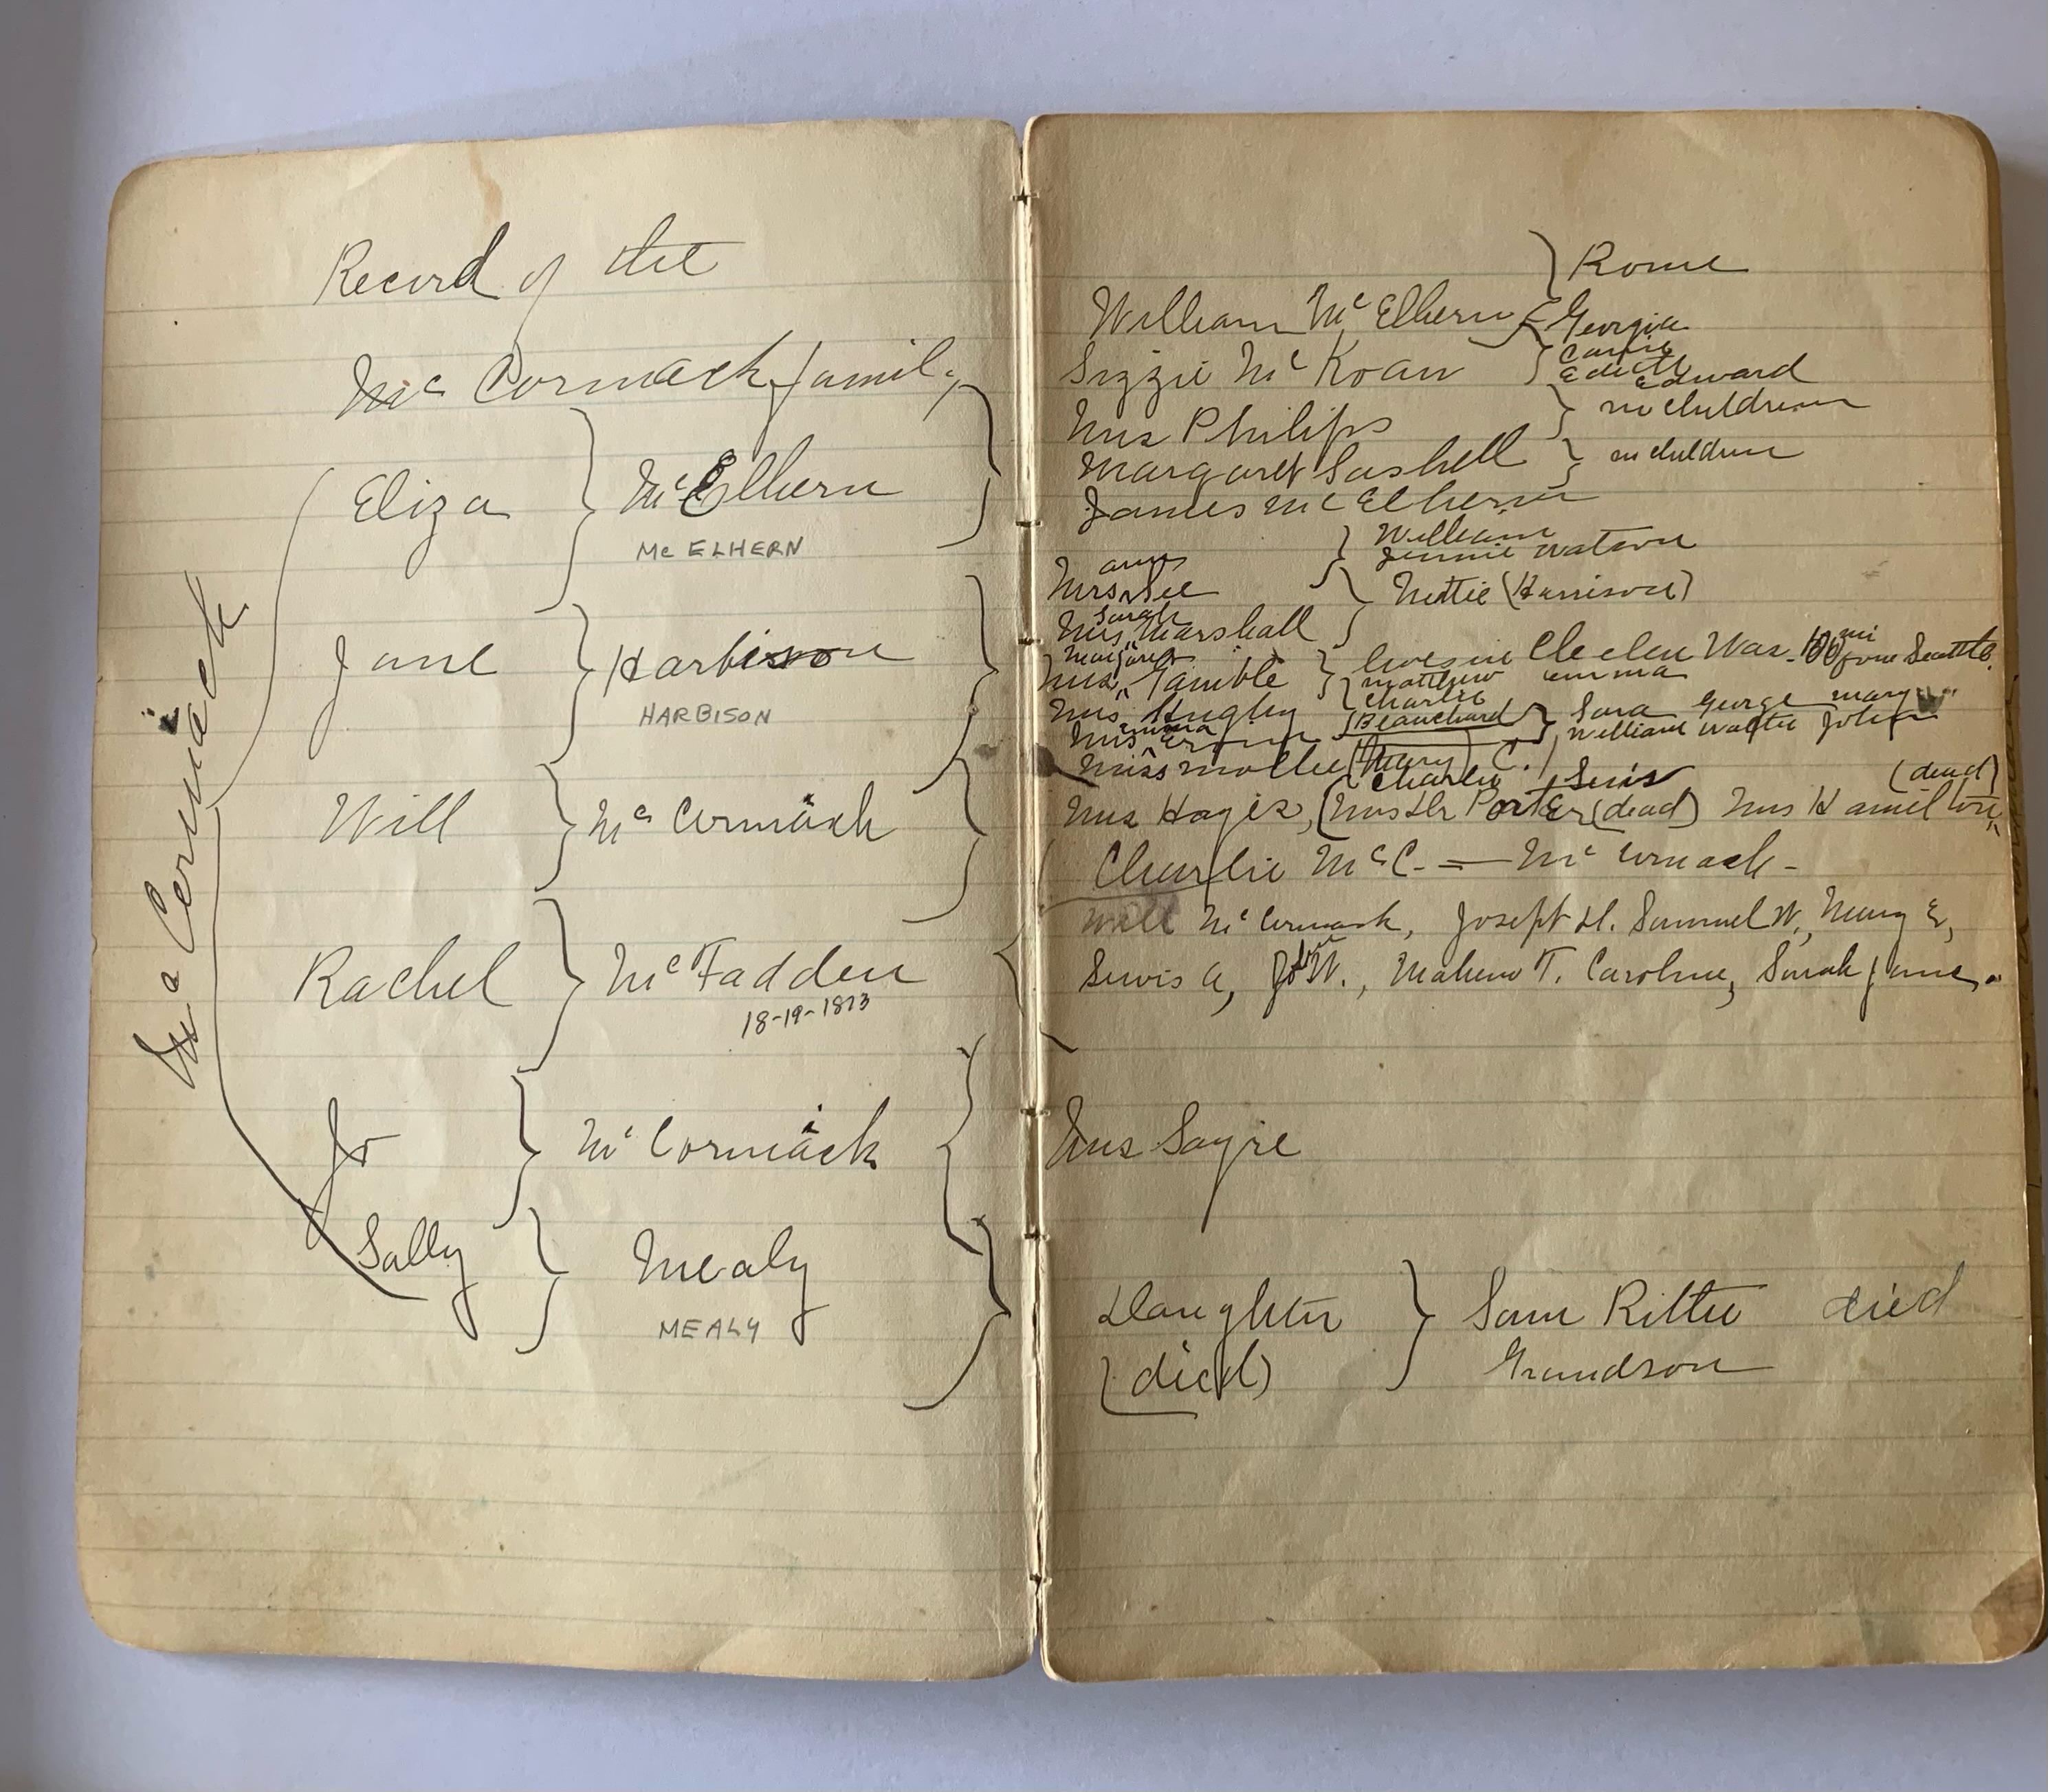 Record of the
Mc Cormack family
Mc Cormack
Eliza } Mc Elhern
Mc ELHERN
Jane } Harbison
HARBISON
Will } Mc Cormack
Rachel } Mc Fadden
18-19-1873
Jo } Mc Cormack
Sally } Mealy
MEALY
Rome
William Mc Elhern Georgia
Carrie
Lizzie Mc Koan } Edith
Edward
Mrs Philips } no children
Margaret } no children
James Mc Elhern
William
Jennie Watson
Ann
Mrs See
Nettie (Harrison)
Sarah
Mrs Marshall
Margaret
Mrs Gamble } Lives in Cle elen Was. 100 mi from Seattle.
Matthew Emma
Charlie
Mrs Hugley
Blanchard } Sara George Mary
William Walter John
Emma
Mrs
Miss Mollie (Mary) C.
Charlie Lewis (dead)
Mrs Hayes, (Mrs Dr Porter (dead) Mrs Hamilton
Charlie Mc C. = Mc Cormack -
Will Mc Cormack, Joseph H. Samuel W., Mary E,
Lewis A, W., Mathew T. Caroline, Sarah Jane.
Mrs Sayre
Daughter } Sam Ritter died
(died) Grandson